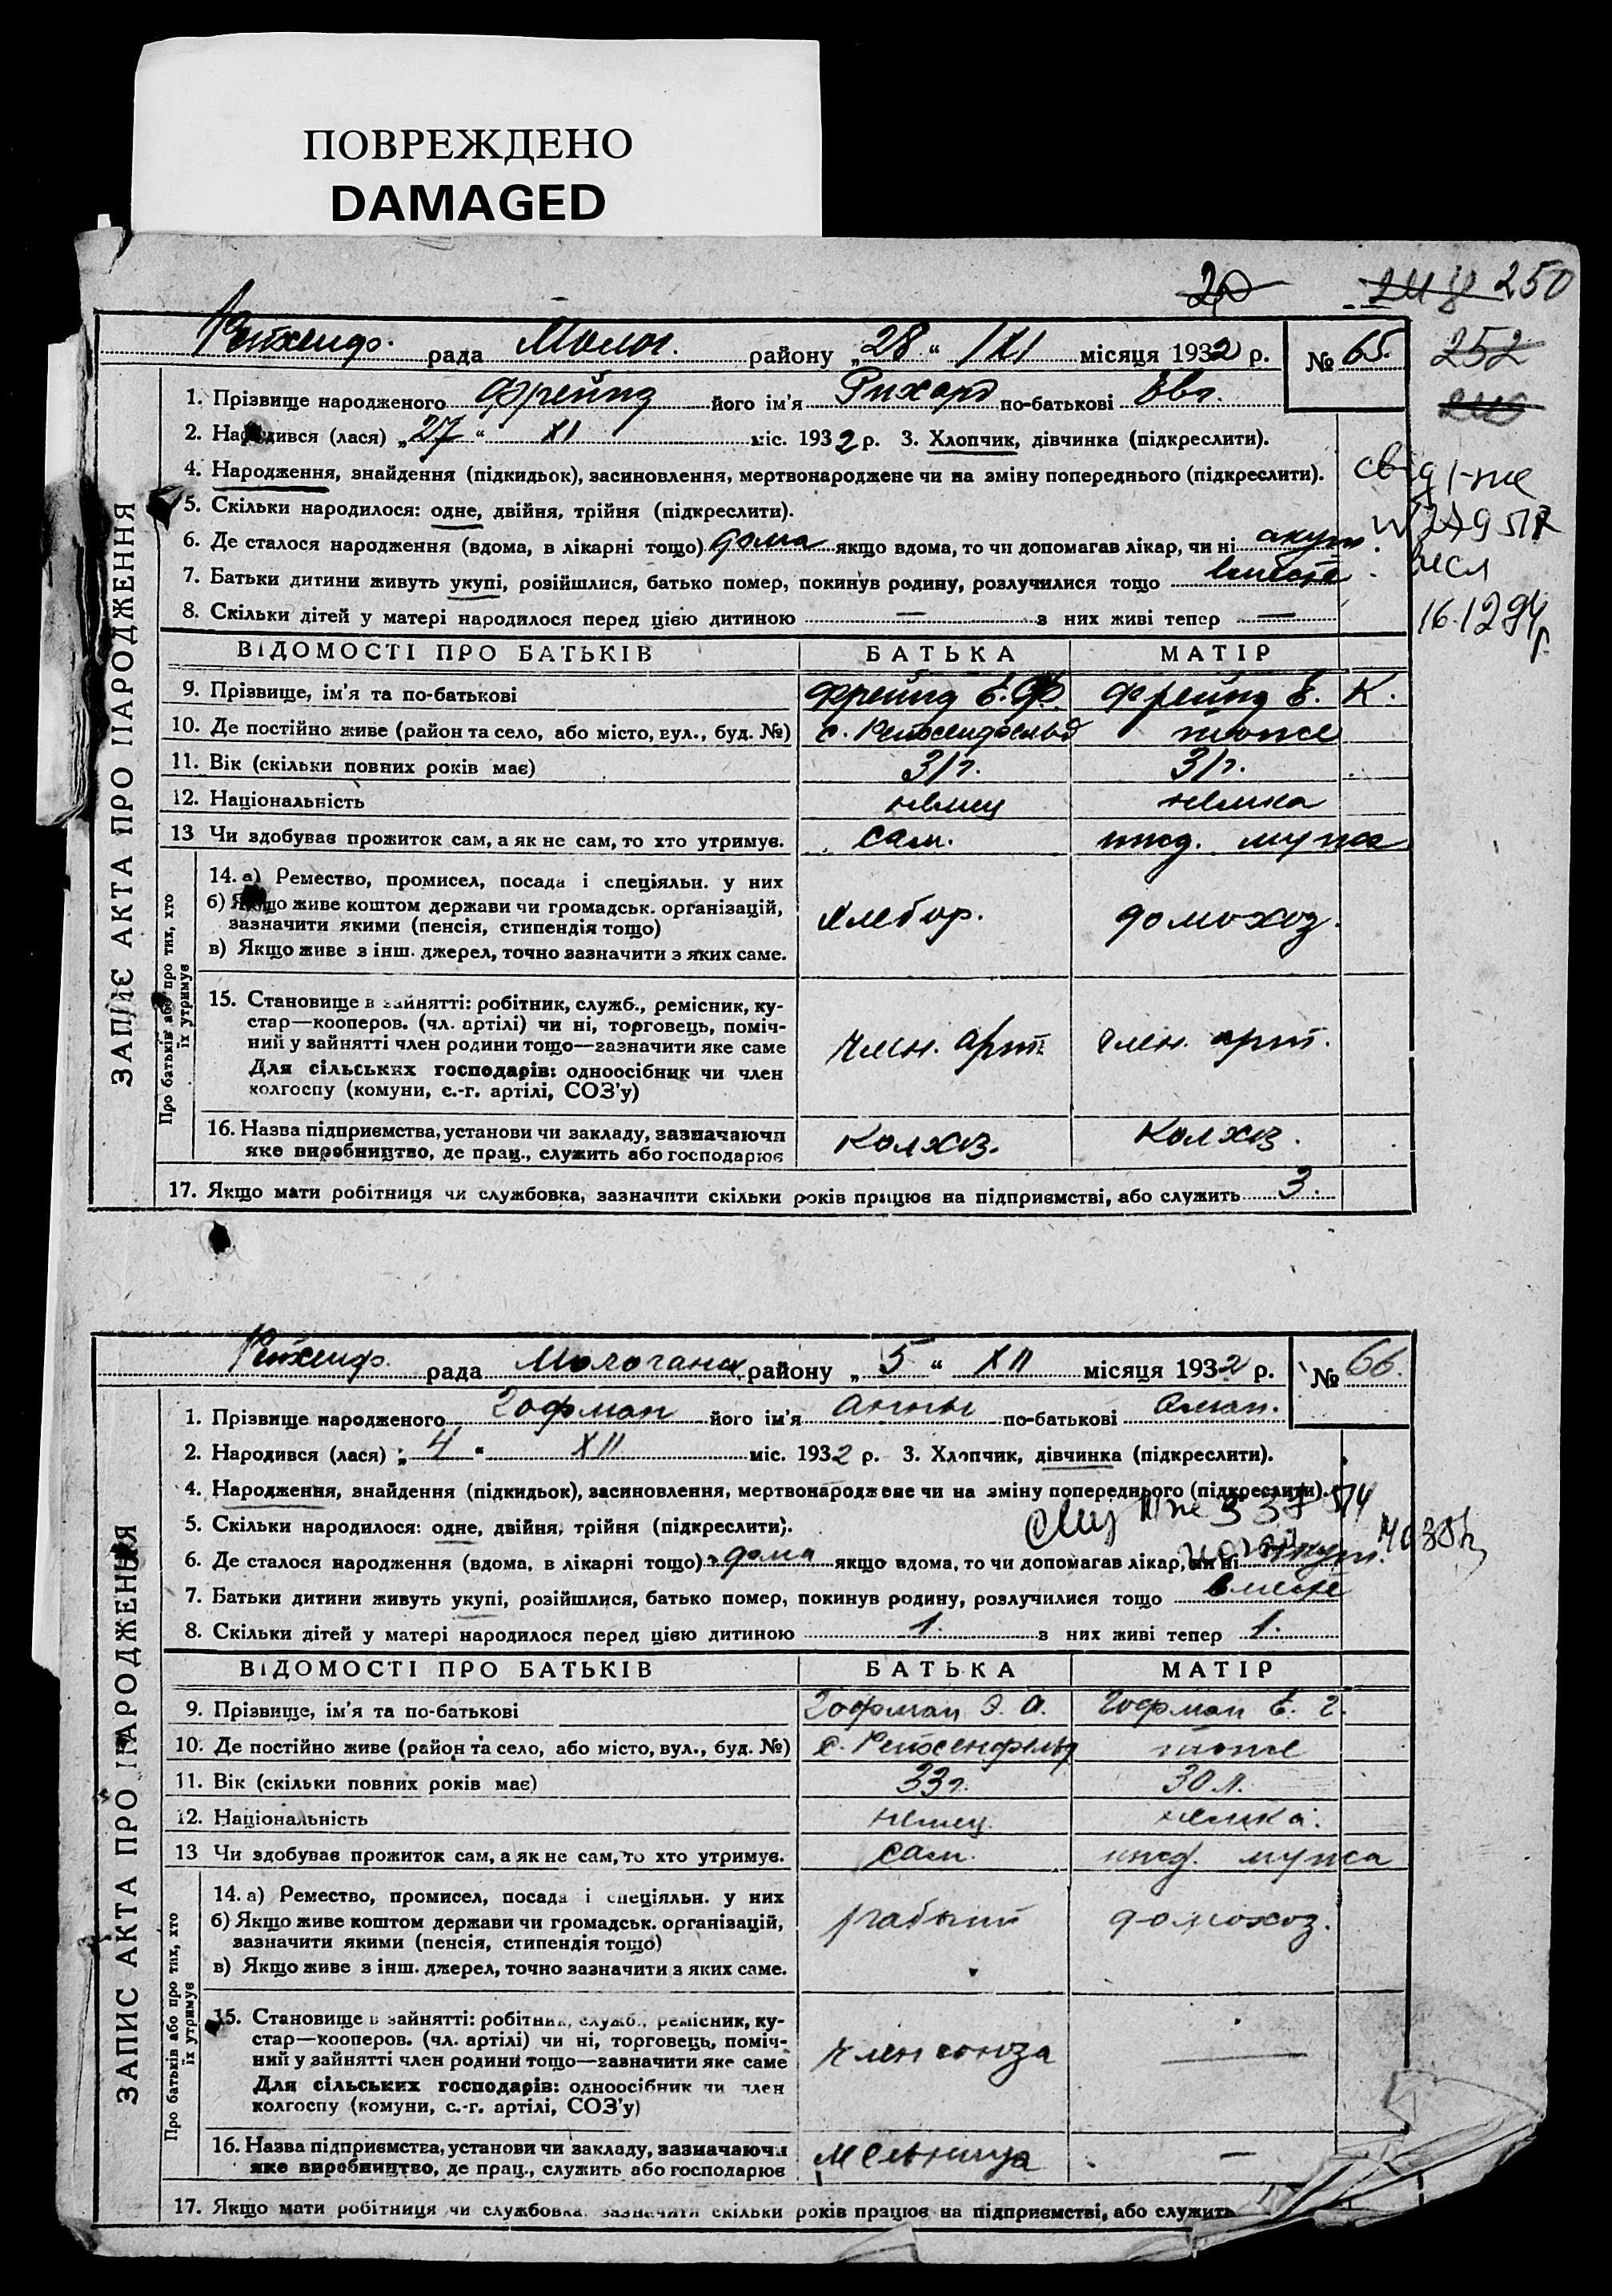 ПОВРЕЖДЕНО
DAMAGED
20
250
Рейхенф. рада Молог. району „28“ /XI місяця 1932 р. № 65.
252
1. Прізвище народженого Фрейнд його ім'я Рихард по-батькові
2. Народився (лася) „27“ XI міс. 1932 р. 3. Хлопчик, дівчинка (підкреслити).
4. Народження, знайдення (підкидьок), засиновлення, мертвонароджене чи на зміну попереднього (підкреслити).
5. Скільки народилося: одне, двійня, трійня (підкреслити).
6. Де сталося народження (вдома, в лікарні тощо) дома якщо вдома, то чи допомагав лікар, чи ні акуш.
7. Батьки дитини живуть укупі, розійшлися, батько помер, покинув родину, розлучилися тощо вместе
8. Скільки дітей у матері народилося перед цією дитиною — з них живі тепер —
ЗАПИС АКТА ПРО НАРОДЖЕННЯ
ВІДОМОСТІ ПРО БАТЬКІВ БАТЬКА МАТІР
9. Прізвище, ім'я та по-батькові Фрейнд Е. Ф. Фрейнд Е. К.
10. Де постійно живе (район та село, або місто, вул., буд. №) с. Рейхенфельд тоже
11. Вік (скільки повних років має) 31 г. 31 г.
12. Національність немец немка
13 Чи здобував прожиток сам, а як не сам, то хто утримує. сам. ижд. мужа
Про батьків або про тих, хто їх утримує
14. а) Ремество, промисел, посада і спеціяльн. у них
б) Якщо живе коштом держави чи громадськ. організацій,
зазначити якими (пенсія, стипендія тощо) хлебор. домохоз.
в) Якщо живе з інш. джерел, точно зазначити з яких саме.
15. Становище в зайнятті: робітник, служб., ремісник, ку-
стар—кооперов. (чл. артілі) чи ні, торговець, поміч-
ний у зайнятті член родини тощо—зазначити яке саме член. арт. член. арт.
Для сільських господарів: одноосібник чи член
колгоспу (комуни, с.-г. артілі, СОЗ'у)
16. Назва підприємства, установи чи закладу, зазначаючи
яке виробництво, де прац., служить або господарює колхоз. колхоз.
17. Якщо мати робітниця чи службовка, зазначити скільки років працює на підприємстві, або служить 3.
Рейхенф. рада Молочанск району „5“ XII місяця 1932 р. № 66.
1. Прізвище народженого Гофман його ім'я Анны по-батькові
2. Народився (лася) „4“ XII міс. 1932 р. 3. Хлопчик, дівчинка (підкреслити).
4. Народження, знайдення (підкидьок), засиновлення, мертвонароджене чи на зміну попереднього (підкреслити).
5. Скільки народилося: одне, двійня, трійня (підкреслити).
6. Де сталося народження (вдома, в лікарні тощо) дома якщо вдома, то чи допомагав лікар, чи ні акуш.
7. Батьки дитини живуть укупі, розійшлися, батько помер, покинув родину, розлучилися тощо вместе
8. Скільки дітей у матері народилося перед цією дитиною 1. з них живі тепер 1.
ЗАПИС АКТА ПРО НАРОДЖЕННЯ
ВІДОМОСТІ ПРО БАТЬКІВ БАТЬКА МАТІР
9. Прізвище, ім'я та по-батькові Гофман Э. А. Гофман Е. Г.
10. Де постійно живе (район та село, або місто, вул., буд. №) с. Рейхенфельд тоже
11. Вік (скільки повних років має) 33 г. 30 л.
12. Національність немец. немка.
13 Чи здобував прожиток сам, а як не сам, то хто утримує. сам. ижд. мужа
Про батьків або про тих, хто їх утримує
14. а) Ремество, промисел, посада і спеціяльн. у них
б) Якщо живе коштом держави чи громадськ. організацій,
зазначити якими (пенсія, стипендія тощо) домохоз.
в) Якщо живе з інш. джерел, точно зазначити з яких саме.
15. Становище в зайнятті: робітник, служб., ремісник, ку-
стар—кооперов. (чл. артілі) чи ні, торговець, поміч-
ний у зайнятті член родини тощо—зазначити яке саме член союза —
Для сільських господарів: одноосібник чи член
колгоспу (комуни, с.-г. артілі, СОЗ'у)
16. Назва підприємства, установи чи закладу, зазначаючи
яке виробництво, де прац., служить або господарює мельница —
17. Якщо мати робітниця чи службовка, зазначити скільки років працює на підприємстві, або служить